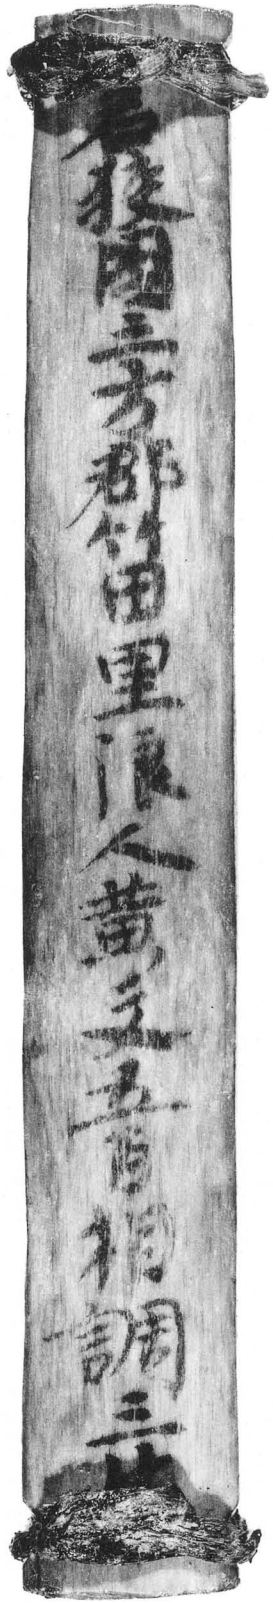 若狭國三方郡竹田里浪人黄文五百相調三斗